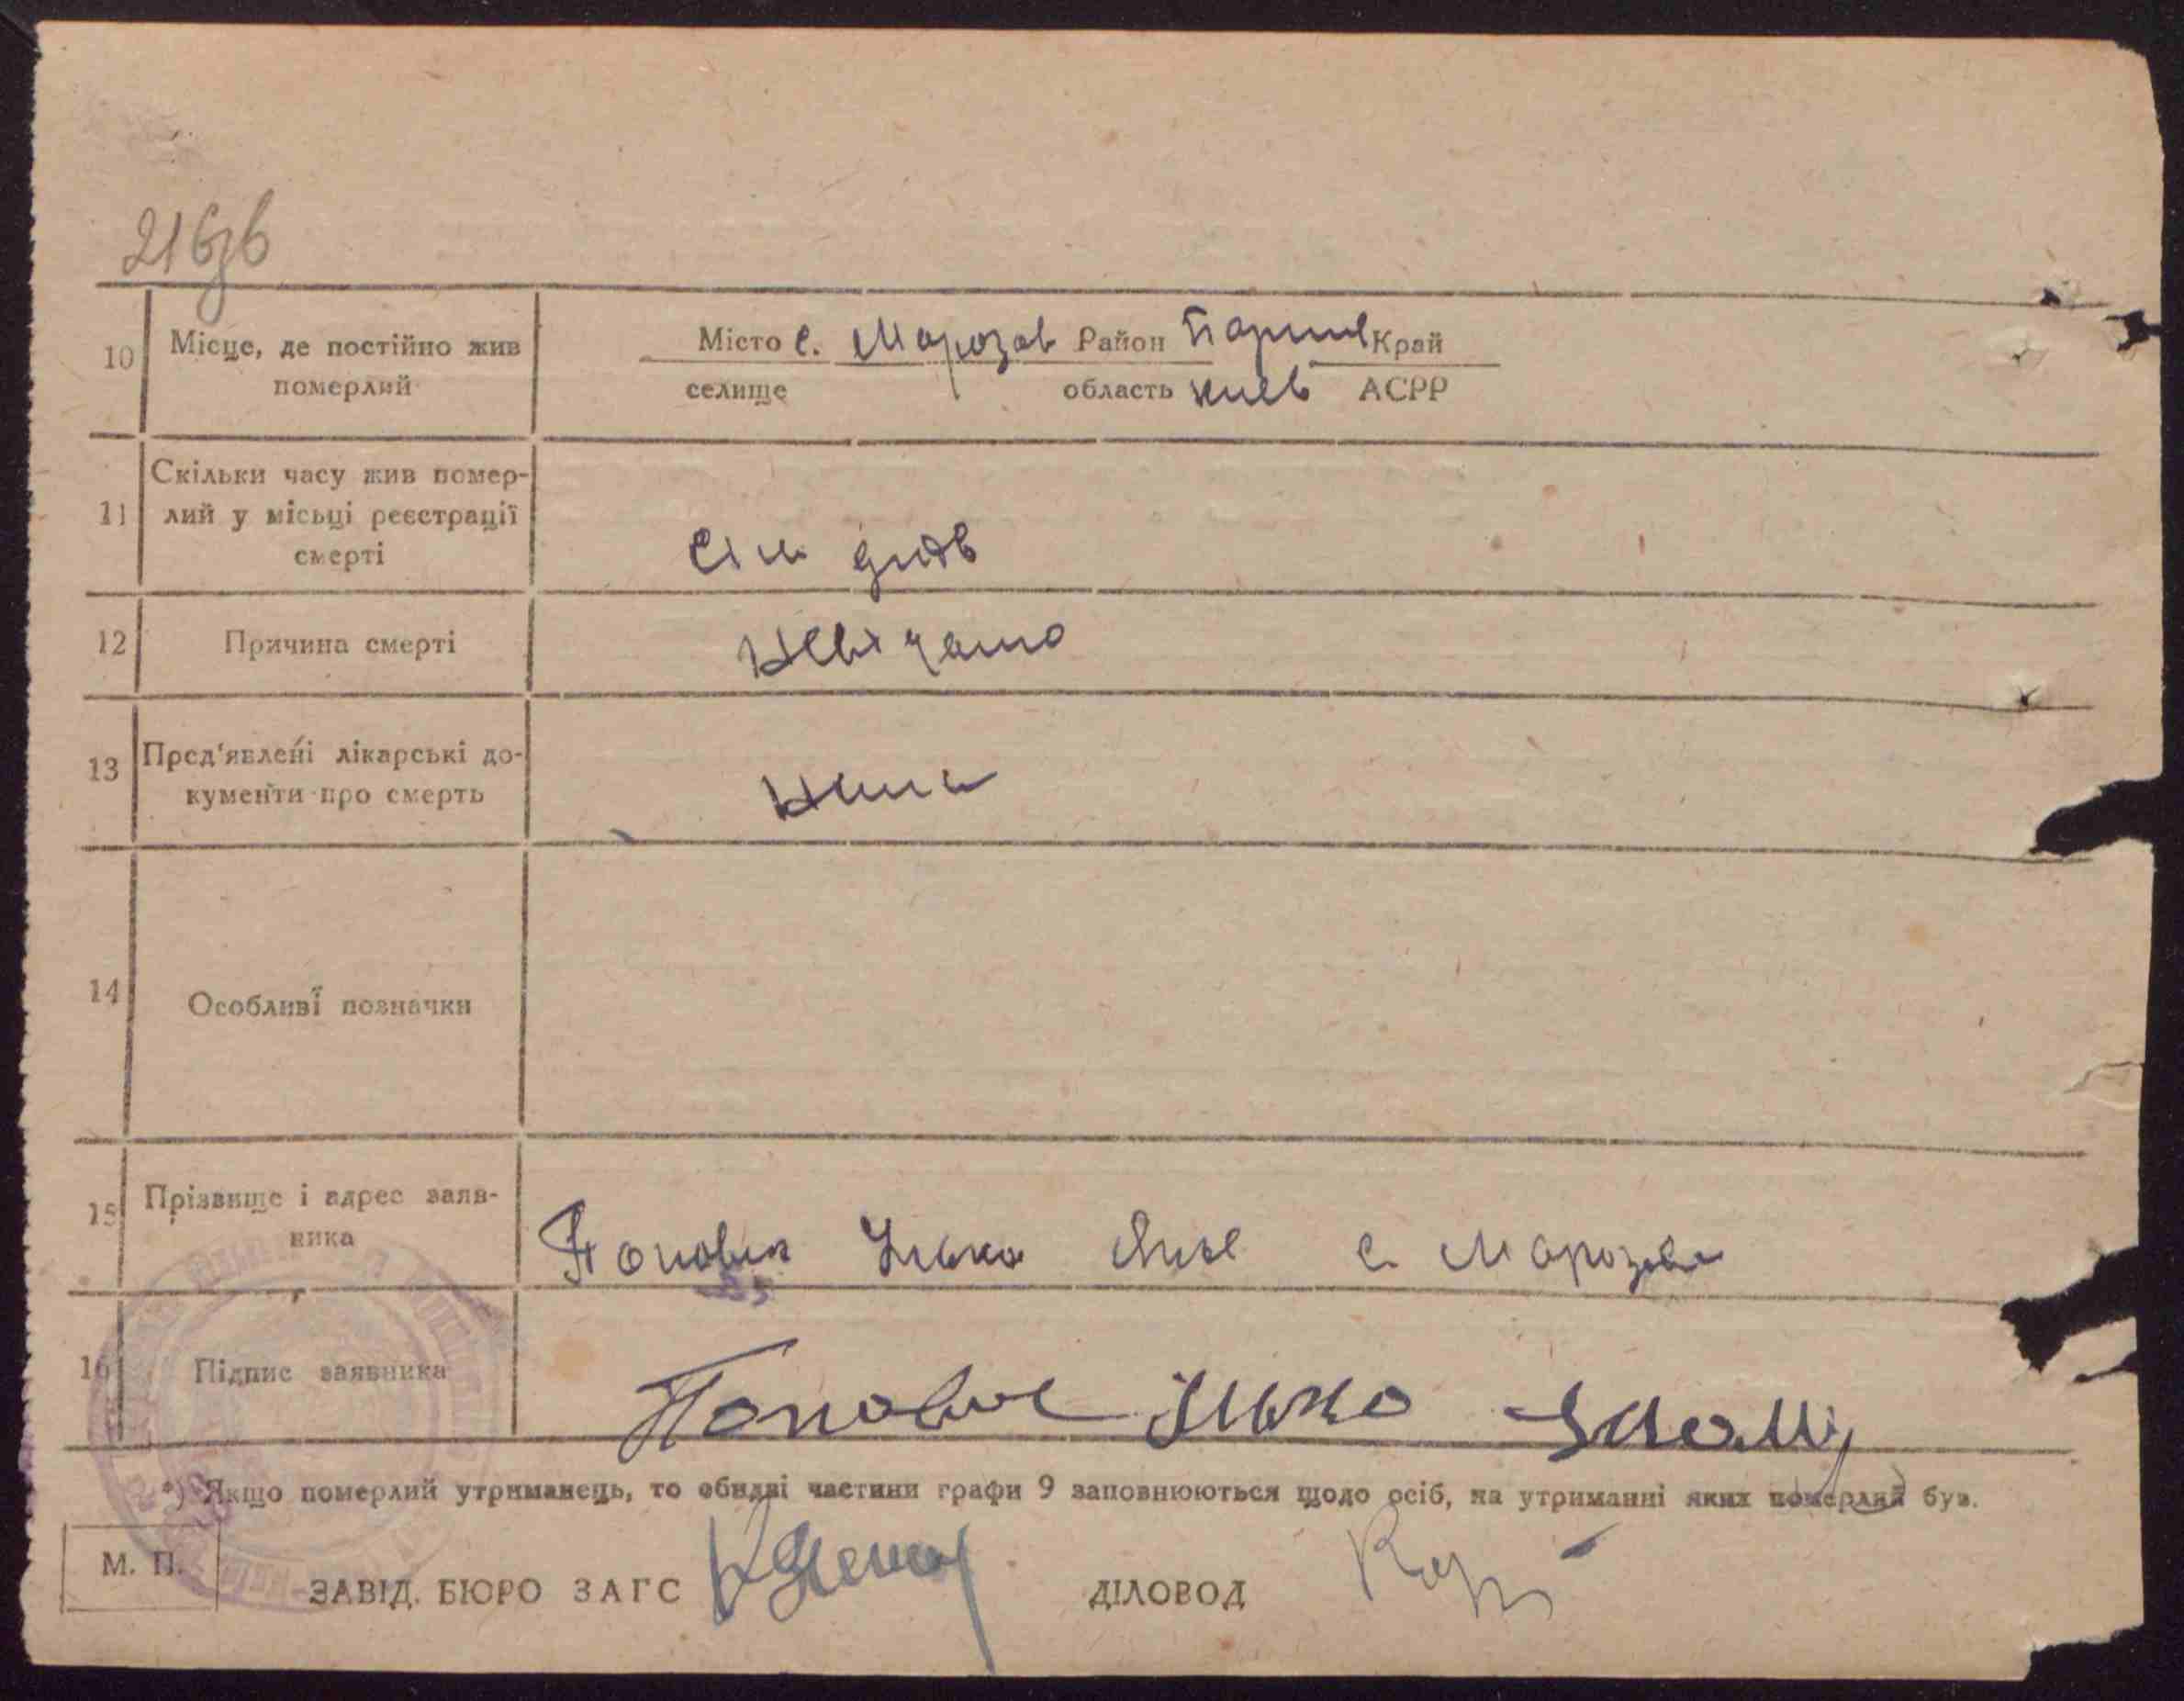 216зв
10 Місце, де постійно жив померлий
Місто с. Морозов Район Бориш Край
селище область Киев АСРР
11 Скільки часу жив помер-
лий у місьці реєстрації
смерті
Сім днів
12 Причина смерті
Невідомо
13 Пред'явлені лікарські до-
кументи про смерть
Нима
14 Особливі позначки
15 Прізвище і адрес заяв-
ника
Попович Улько с. Морозова
16 Підпис заявника
Попович Ілько
*) Якщо померлий утриманець, то обидві частини графи 9 заповнюються щодо осіб, на утриманні яких померлий був.
М. П.
ЗАВІД. БЮРО ЗАГС
ДІЛОВОД